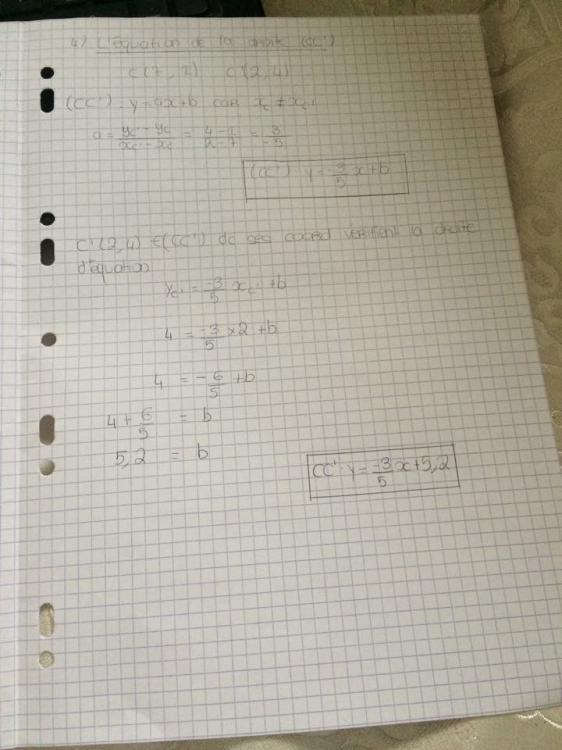 4) L'équation de la droite (CC')
C(7,1) C'(2,4)
(CC') : y = ax+b car xc ≠ xc'
a = yc' - yc / xc' - xc = 4-1 / 2-7 = 3 / -5
(CC') y = -3/5 x + b
C'(2,4) ∈ (CC') dc ses coord vérifient la droite
d'équation
yc' = -3/5 xc' + b
4 = -3/5 × 2 + b
4 = -6/5 + b
4 + 6/5 = b
5,2 = b
CC' : y = -3/5 x + 5,2